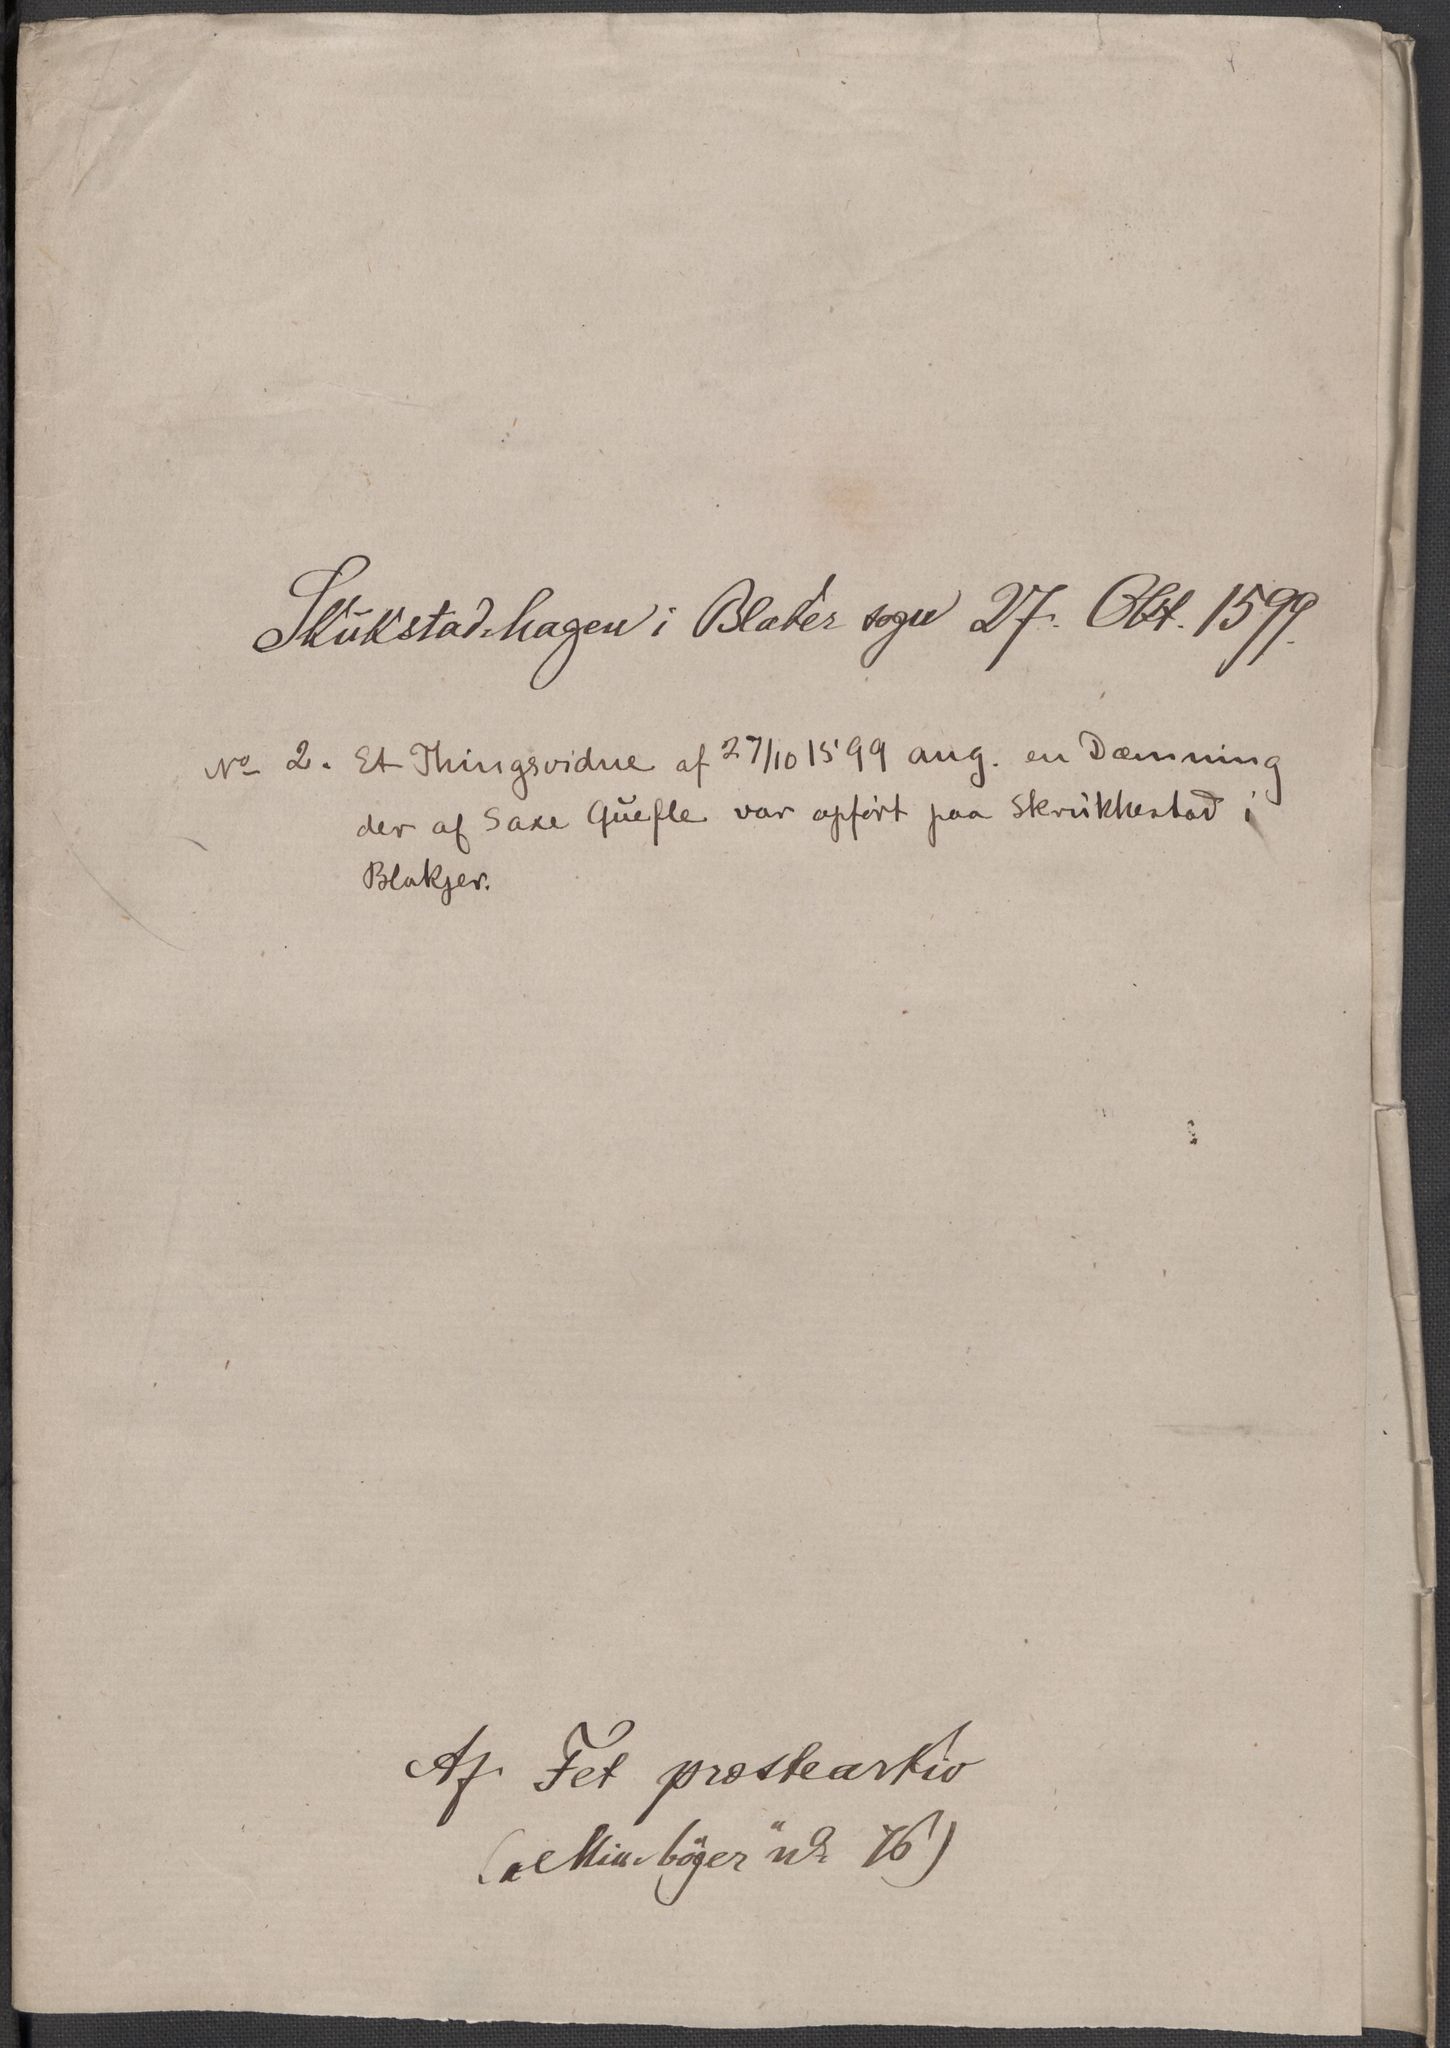 Skukstad-hagen i Blaker sogn 27. Okt. 1599.
No 2. Et Thingsvidne af 27/10 1599 ang. en Dæmning
der af Saxe Guefle var opført paa Skrukkestad i
Blakjer.
Af Fet prestearkiv
("Min. böger" no. 16)